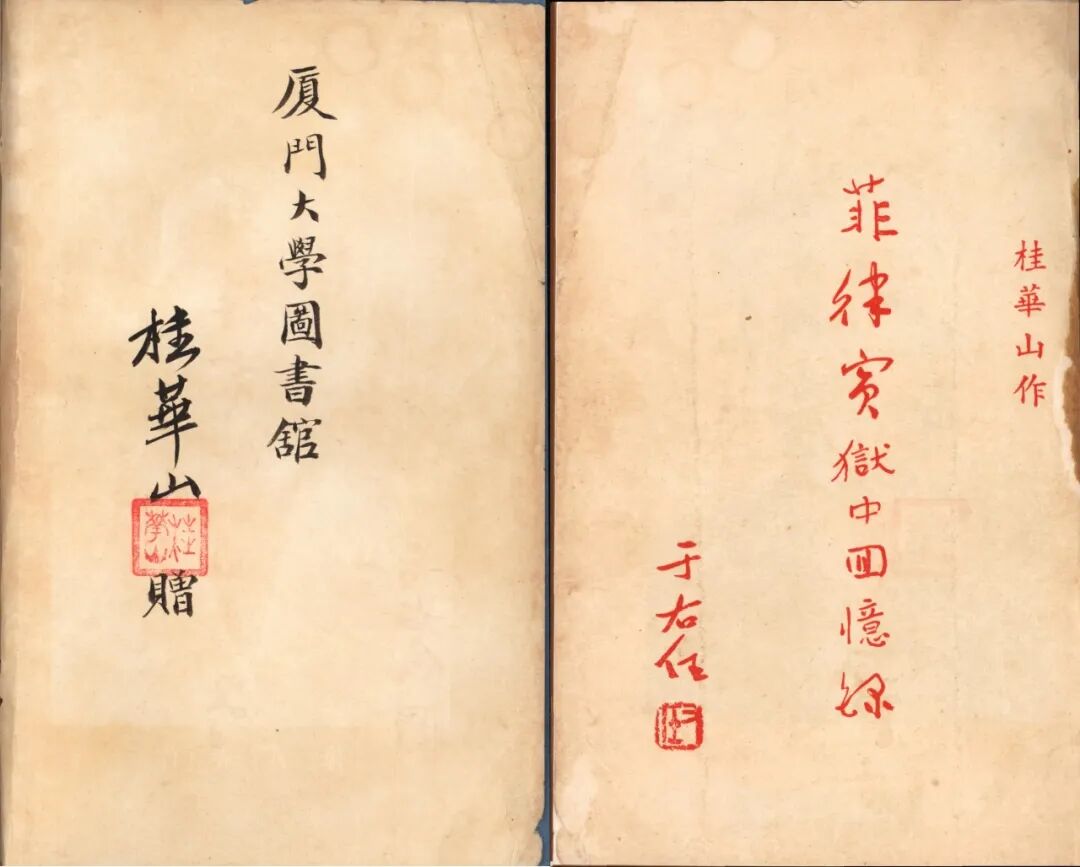 厦門大學圖書舘
桂華山贈
桂華山
桂華山作
菲律賓獄中囬憶錄
于右任
右任